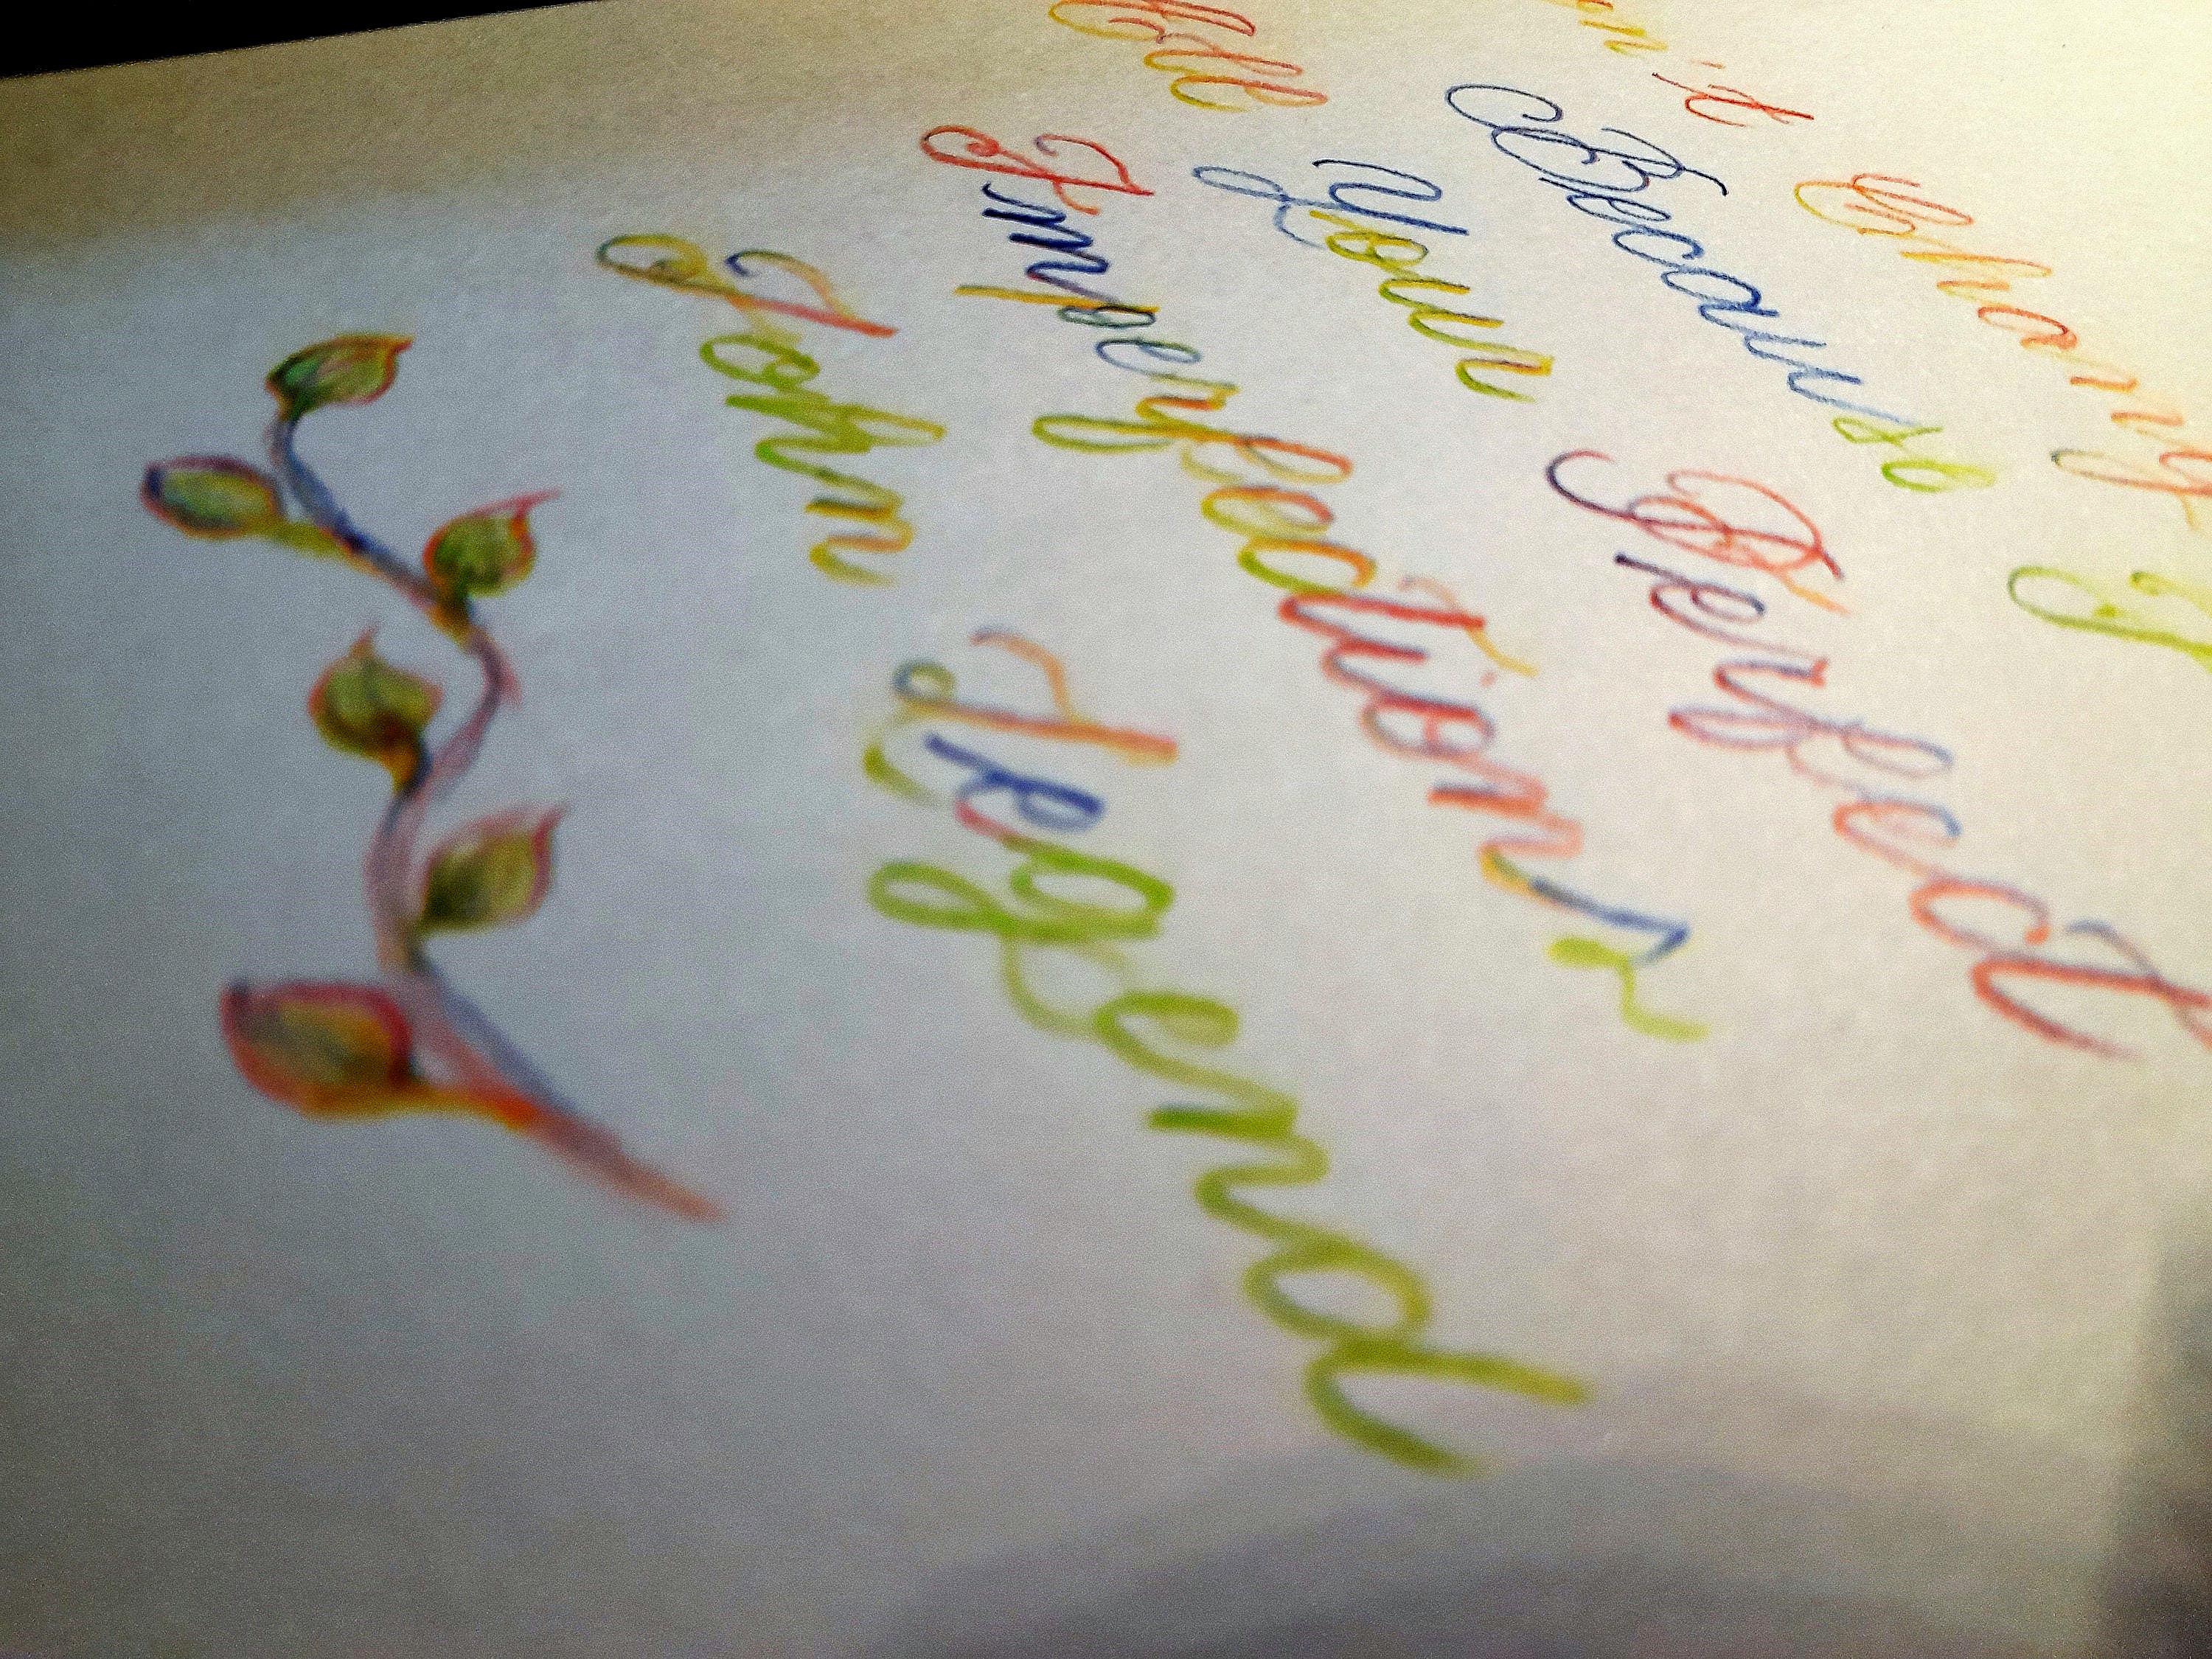 n't Chang
Because
All Your Perfect
Imperfections ~
John Legend